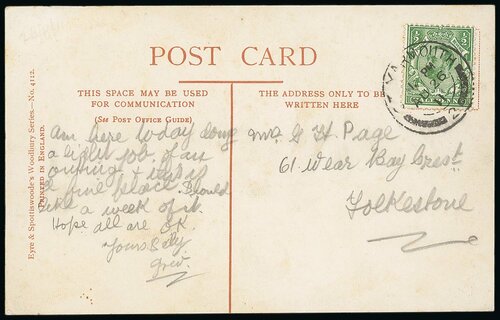 POST CARD
THIS SPACE MAY BE USED
FOR COMMUNICATION
(See Post Office Guide)
THE ADDRESS ONLY TO BE
WRITTEN HERE
Eyre & Spottiswoode's Woodbury Series.—No. 4112.
PRINTED IN ENGLAND.
am here today doing
a light job of an
outing & it is
a fine place. Should
like a week of it.
Hope all are OK
Yours
Fred.
Mr G H Page
61 Wear Bay Crest
Folkestone
YARMOUTH